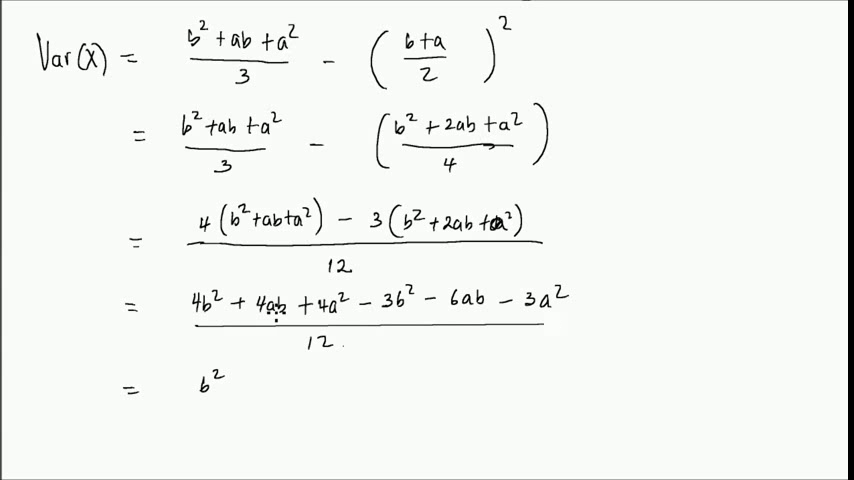 Var(X) = (b² + ab + a²)/3 - ((b+a)/2)²
= (b² + ab + a²)/3 - ((b² + 2ab + a²)/4)
= (4(b² + ab + a²) - 3(b² + 2ab + a²))/12
= (4b² + 4ab + 4a² - 3b² - 6ab - 3a²)/12
= b²